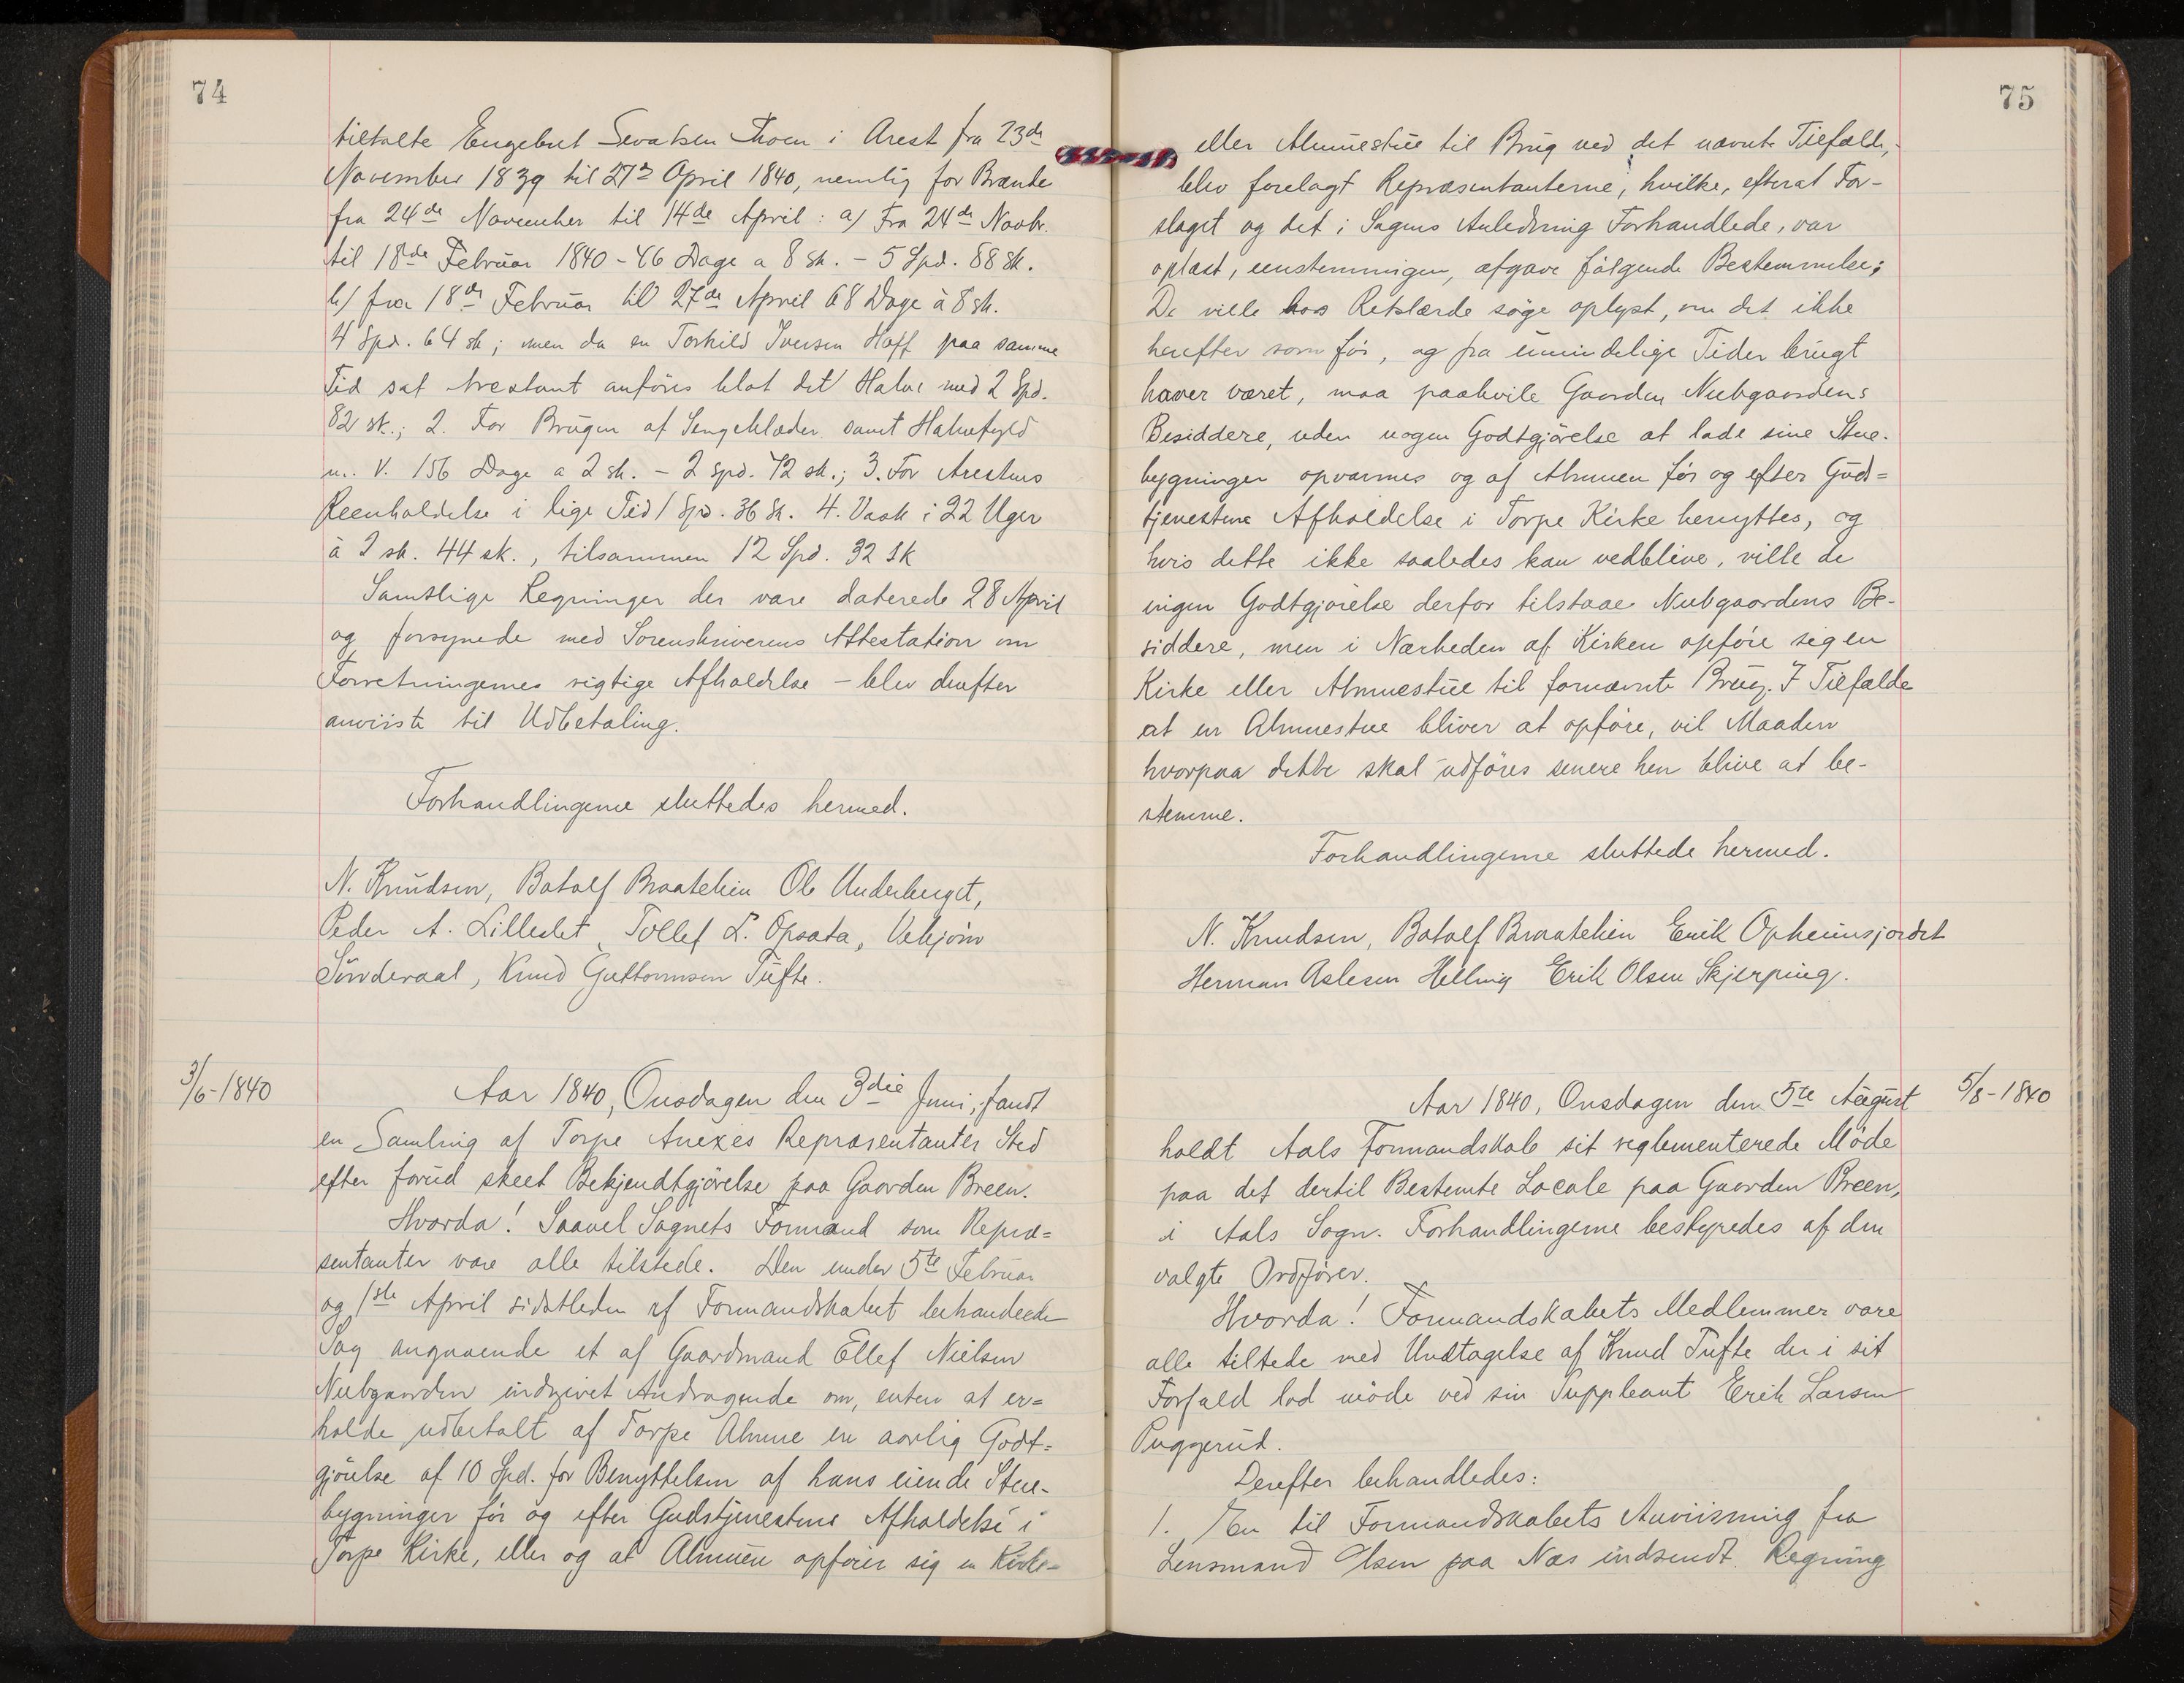 74
tiltalte Engebret Sevatsen Thoen i Arest fra 23de
November 1839 til 27de April 1840, nemlig for Brænde
fra 24de November til 14de April: a) Fra 24de Novbr.
til 18de Februar 1840 - 46 Dage a 8 sk. - 5 Spd. 88 sk.
b) fra 18de Februar til 27de April 68 Dage à 8 sk.
4 Spd. 64 sk; men da en Torkild Iversen Hoff paa samme
Tid sat Arestant anføres blot det Halve med 2 Spd.
82 sk.; 2. For Brugen af Sengeklæder samt Halmfyld
m. V. 156 Dage a 2 sk. - 2 spd. 72 sk.; 3. For Arestens
Reenholdelse i lige Tid 1 Spd. 36 Sk. 4. Vask i 22 Uger
à 2 sk. 44 sk., tilsammen 12 Spd. 32 Sk
Samtlige Regninger der vare daterede 28 April
og forsynede med Sorenskriverens Attestation om
Forretningernes rigtige Afholdelse - blev derefter
anviiste til Udbetaling.
Forhandlingerne sluttedes hermed.
N. Knudsen, Botolf Braatehin Ole Underberget,
Peder A. Lilleslet, Tollef L. Opsata, Vebjørn
Sønderaal, Knud Guttormsen Tufte.
3/6-1840
Aar 1840, Onsdagen den 3die Juni, fandt
en Samling af Torpe Anexes Repræsentanter Sted
efter forud skeet Bekjendtgjørelse paa Gaarden Breen.
Hvorda! Saavel Sognets Formænd som Repræ=
sentanter vare alle tilstede. Den under 5te Februar
og 1ste April sidstleden af Formandskabet behandlede
Sag angaaende et af Gaardmand Ellef Nielsen
Nubgaarden indgivet Andragende om, enten at er=
holde udbetalt af Torpe Almue en aarlig Godt=
gjørelse af 10 Spd. for Benyttelsen af hans eiende Stue-
bygninger før og efter Gudstjenestens Afholdelse i
Torpe Kirke, eller og at Almuen opfører sig en Kirke-
75
eller Almuestue til Brug ved det nævnte Tilfælde,
blev forelagt Repræsentanterne, hvilke, efterat For-
slaget og det i Sagens Anledning Forhandlede, var
oplæst, eenstemmigen, afgave følgende Bestemmelse:
De ville hos Retslærde søge oplyst, om det ikke
herefter som før, og fra umindelige Tider brugt
haver været, maa paahvile Gaarden Nubgaardens
Besiddere, uden nogen Godtgjørelse at lade sine Stue-
bygninger opvarmes og af Almuen før og efter Guds=
tjenestens Afholdelse i Torpe Kirke benyttes, og
hvis dette ikke saaledes kan vedblive, ville de
ingen Godtgjørelse derfor tilstaae Nubgaardens Be-
siddere, men i Nærheden af Kirken opføre sig en
Kirke eller Almuestue til fornævnte Brug. I Tilfælde
at en Almuestue bliver at opføre, vil Maaden
hvorpaa dette skal udføres senere hen blive at be-
stemme.
Forhandlingerne sluttede hermed.
N. Knudsen, Botolf Braatehin Erik Opheimsjordet
Herman Aslesen Helling Erik Olsen Skjerping.
5/8-1840
Aar 1840, Onsdagen den 5te August
holdt Aals Formandskab sit reglementerede Møde
paa det dertil Bestemte Locale paa Gaarden Breen,
i Aals Sogn. Forhandlingerne bestyredes af den
valgte Ordfører.
Hvorda! Formandskabets Medlemmer vare
alle tiltede med Undtagelse af Knud Tufte der i sit
Forfald lod møde ved sin Suppleant Erik Larsen
Puggerud.
Derefter behandledes:
1. En til Formandskabets Anviisning fra
Lensmand Olsen paa Næs indsendt Regning